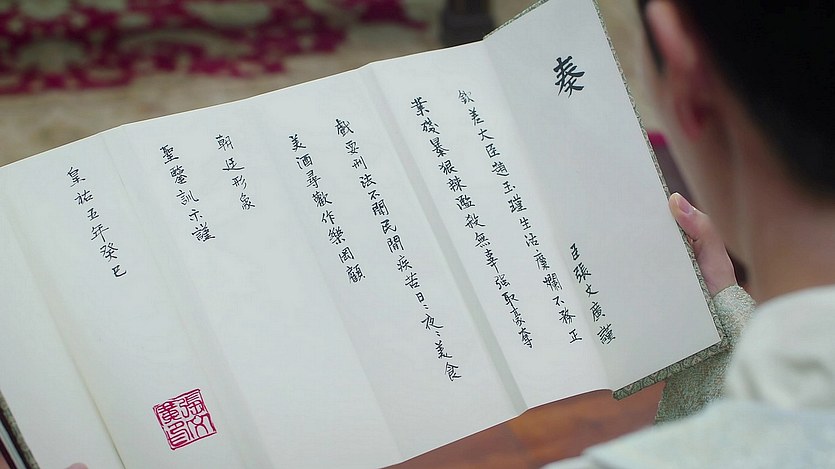 奏
臣張文廣謹
欽差大臣趙玉瑾生活糜爛不務正
業殘暴狠辣濫殺無辜強取豪奪
戲耍刑法不聞民間疾苦日〻夜〻美食
美酒尋歡作樂罔顧
朝廷形象
聖鑒訓示謹
皇祐五年癸巳
張文
廣印